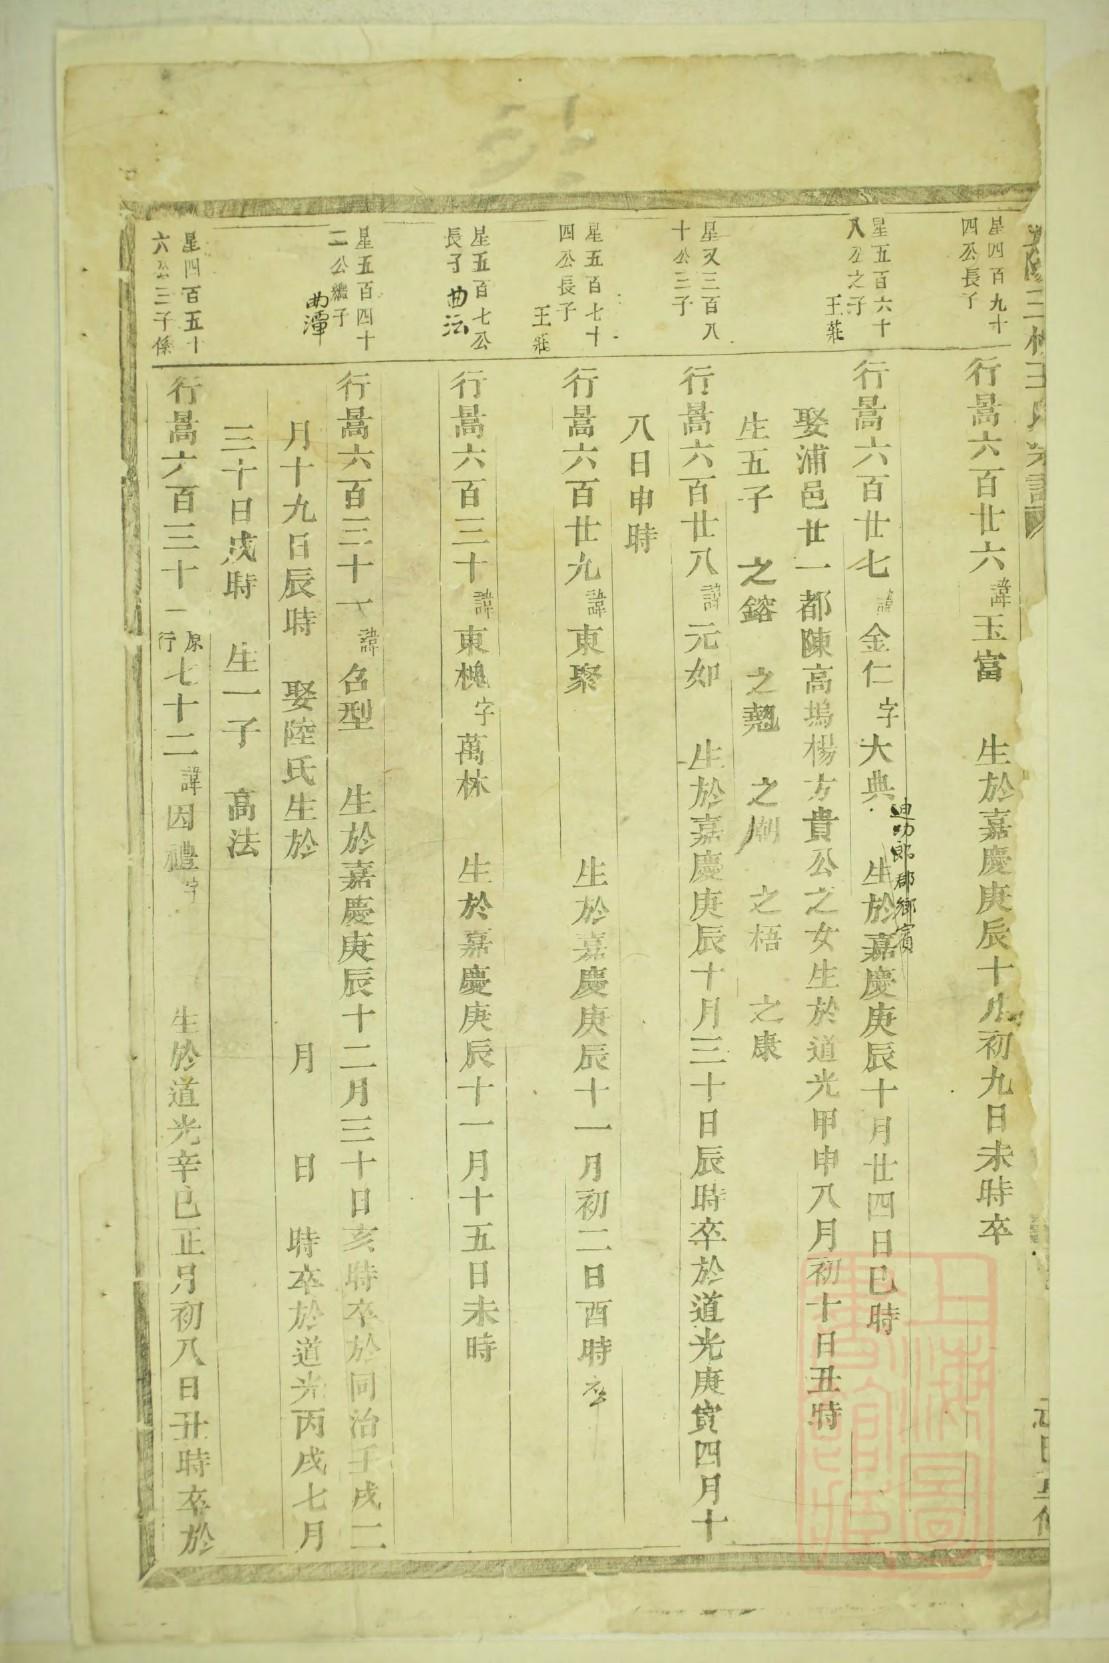 星四百九十
四公長子
行暠六百廿六諱玉富 生於嘉慶庚辰十月初九日未時卒
星五百六十
八公之子
王莊
行暠六百廿七諱金仁字大典 生於嘉慶庚辰十月廿四日巳時
迪功郎郡鄉賓
娶浦邑廿一都陳高塢楊方貴公之女生於道光甲申八月初十日丑時
生五子 之鎔 之 之 之梧 之康
星又三百八
十公三子
行暠六百廿八諱元如 生於嘉慶庚辰十月三十日辰時卒於道光庚寅四月十
八日申時
星五百七十
四公長子
王莊
行暠六百廿九諱東聚 生於嘉慶庚辰十一月初二日酉時卒
星五百七公
長子
曲沄
行暠六百三十諱東槐字萬林 生於嘉慶庚辰十一月十五日未時
星五百四十
二公繼子
曲潭
行暠六百三十一諱名型 生於嘉慶庚辰十二月三十日亥時卒於同治壬戌二
月十九日辰時 娶陸氏生於 月 日 時卒於道光丙戌七月
三十日戌時 生一子 高法
星四百五十
六公三子係
行暠六百三十一原行七十二諱因禮字 生於道光辛巳正月初八日丑時卒於
上海圖書館藏